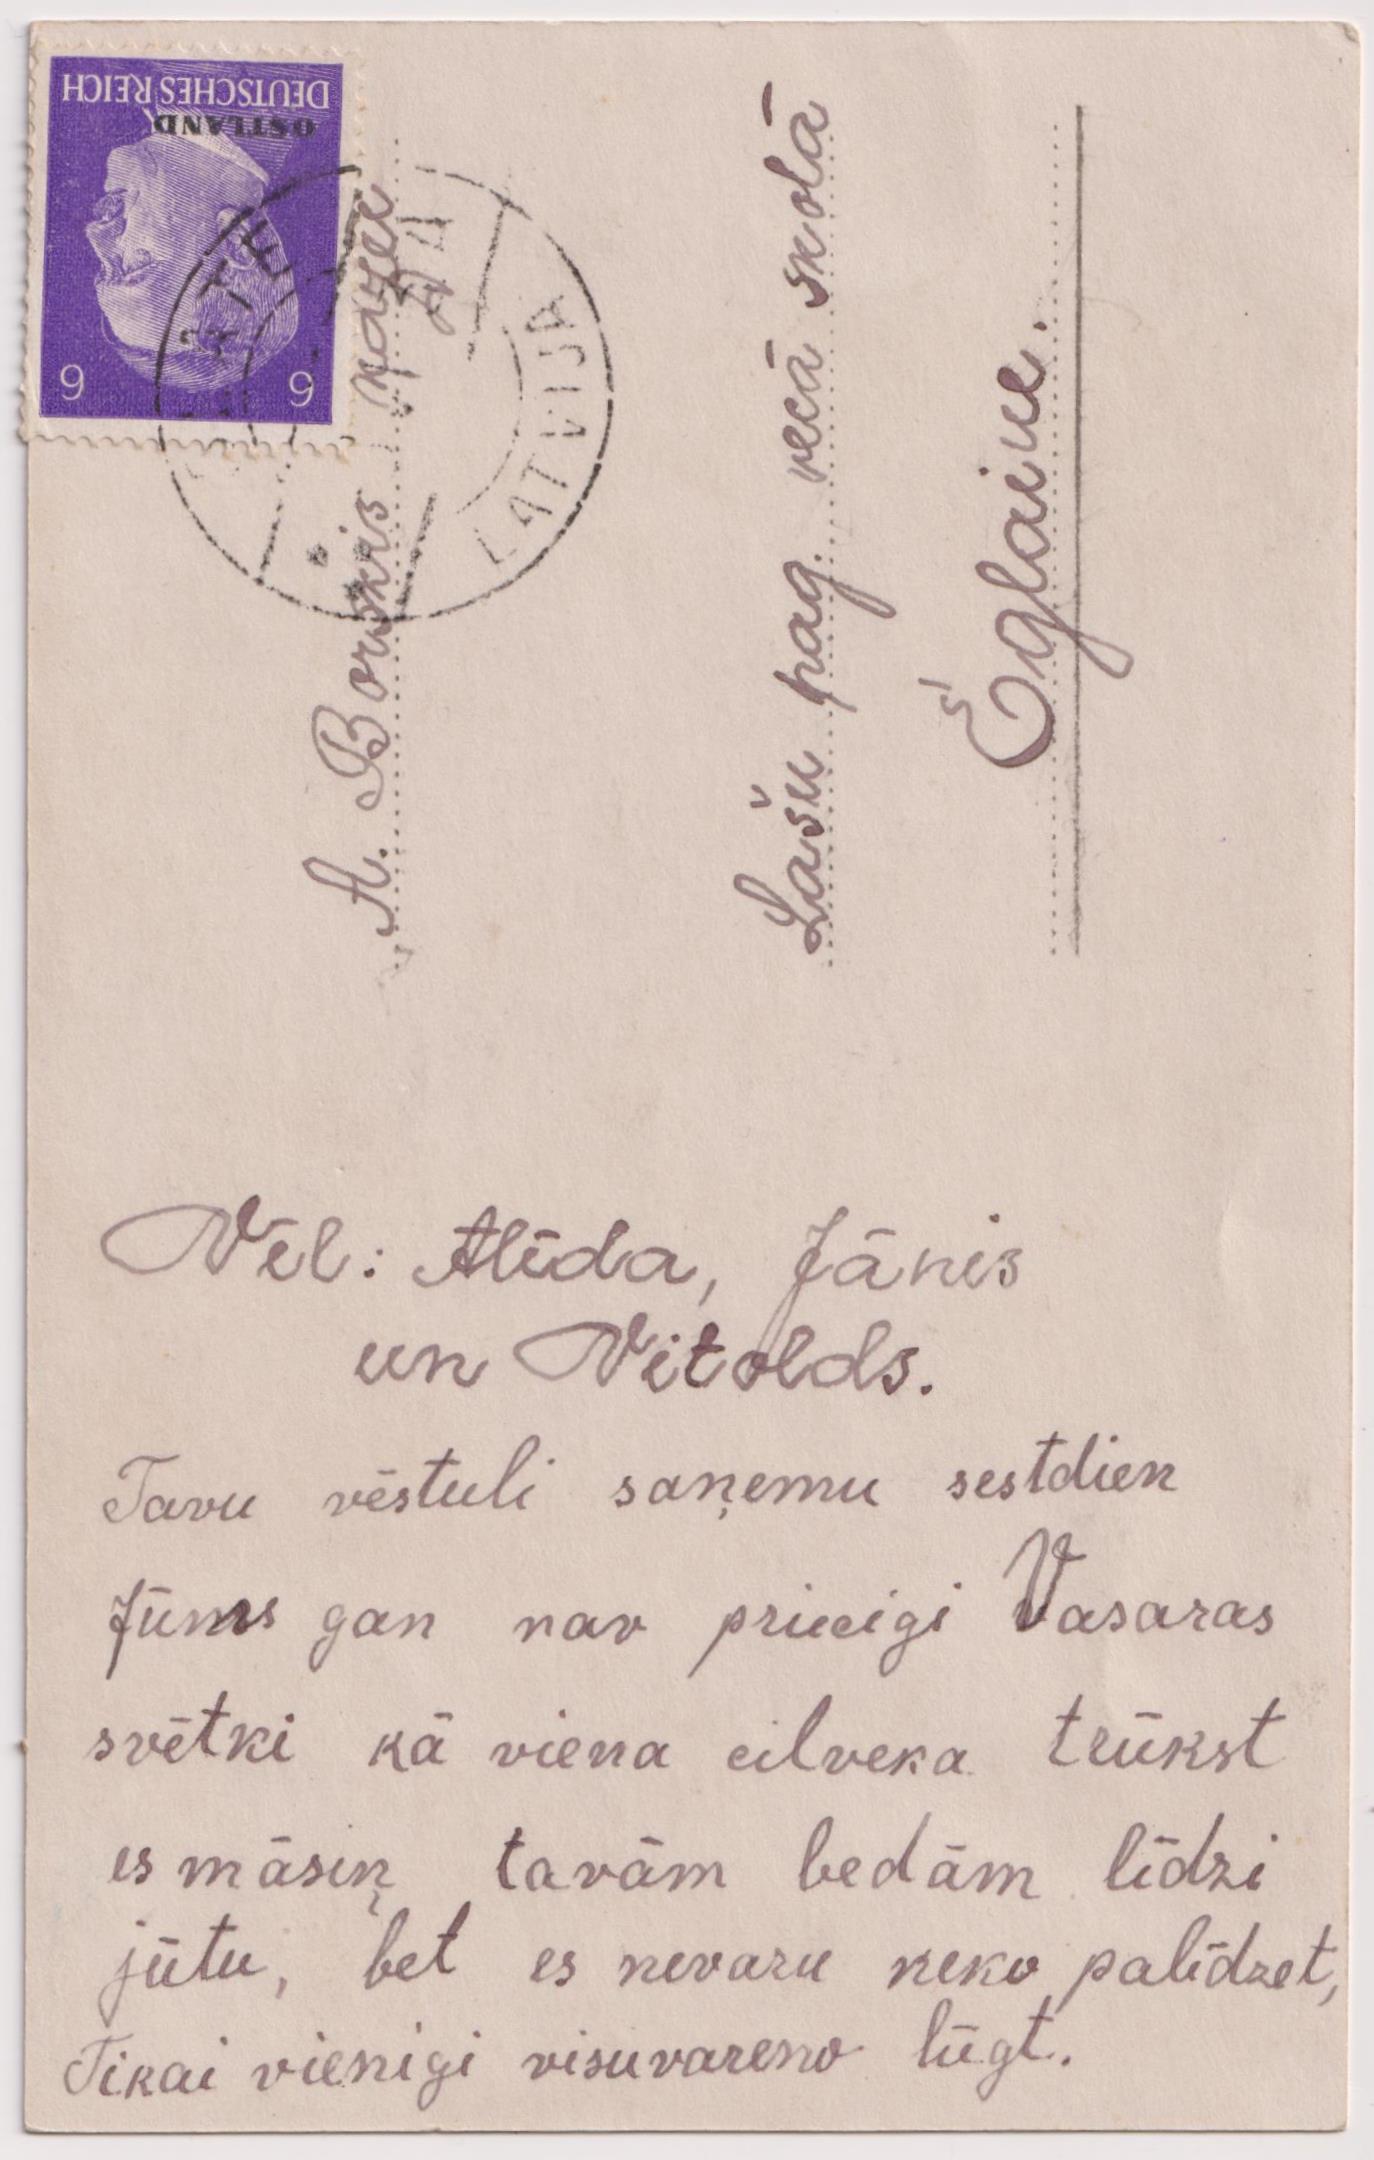 DEUTSCHES REICH
OSTLAND
6 6
LATVIJA
A. Borskis
Lašu pag. vecā skolā
Š
Ēglaine.
Vēl: Alīda, Jānis
un Vitolds.
Tavu vēstuli saņemu sestdien
Jūms gan nav priecigi Vasaras
svētki kā viena cilveka trūkst
es māsiņ tavām bedām līdzi
jūtu, bet es nevaru neko palīdzet,
Tikai vienigi visuvareno lūgt.